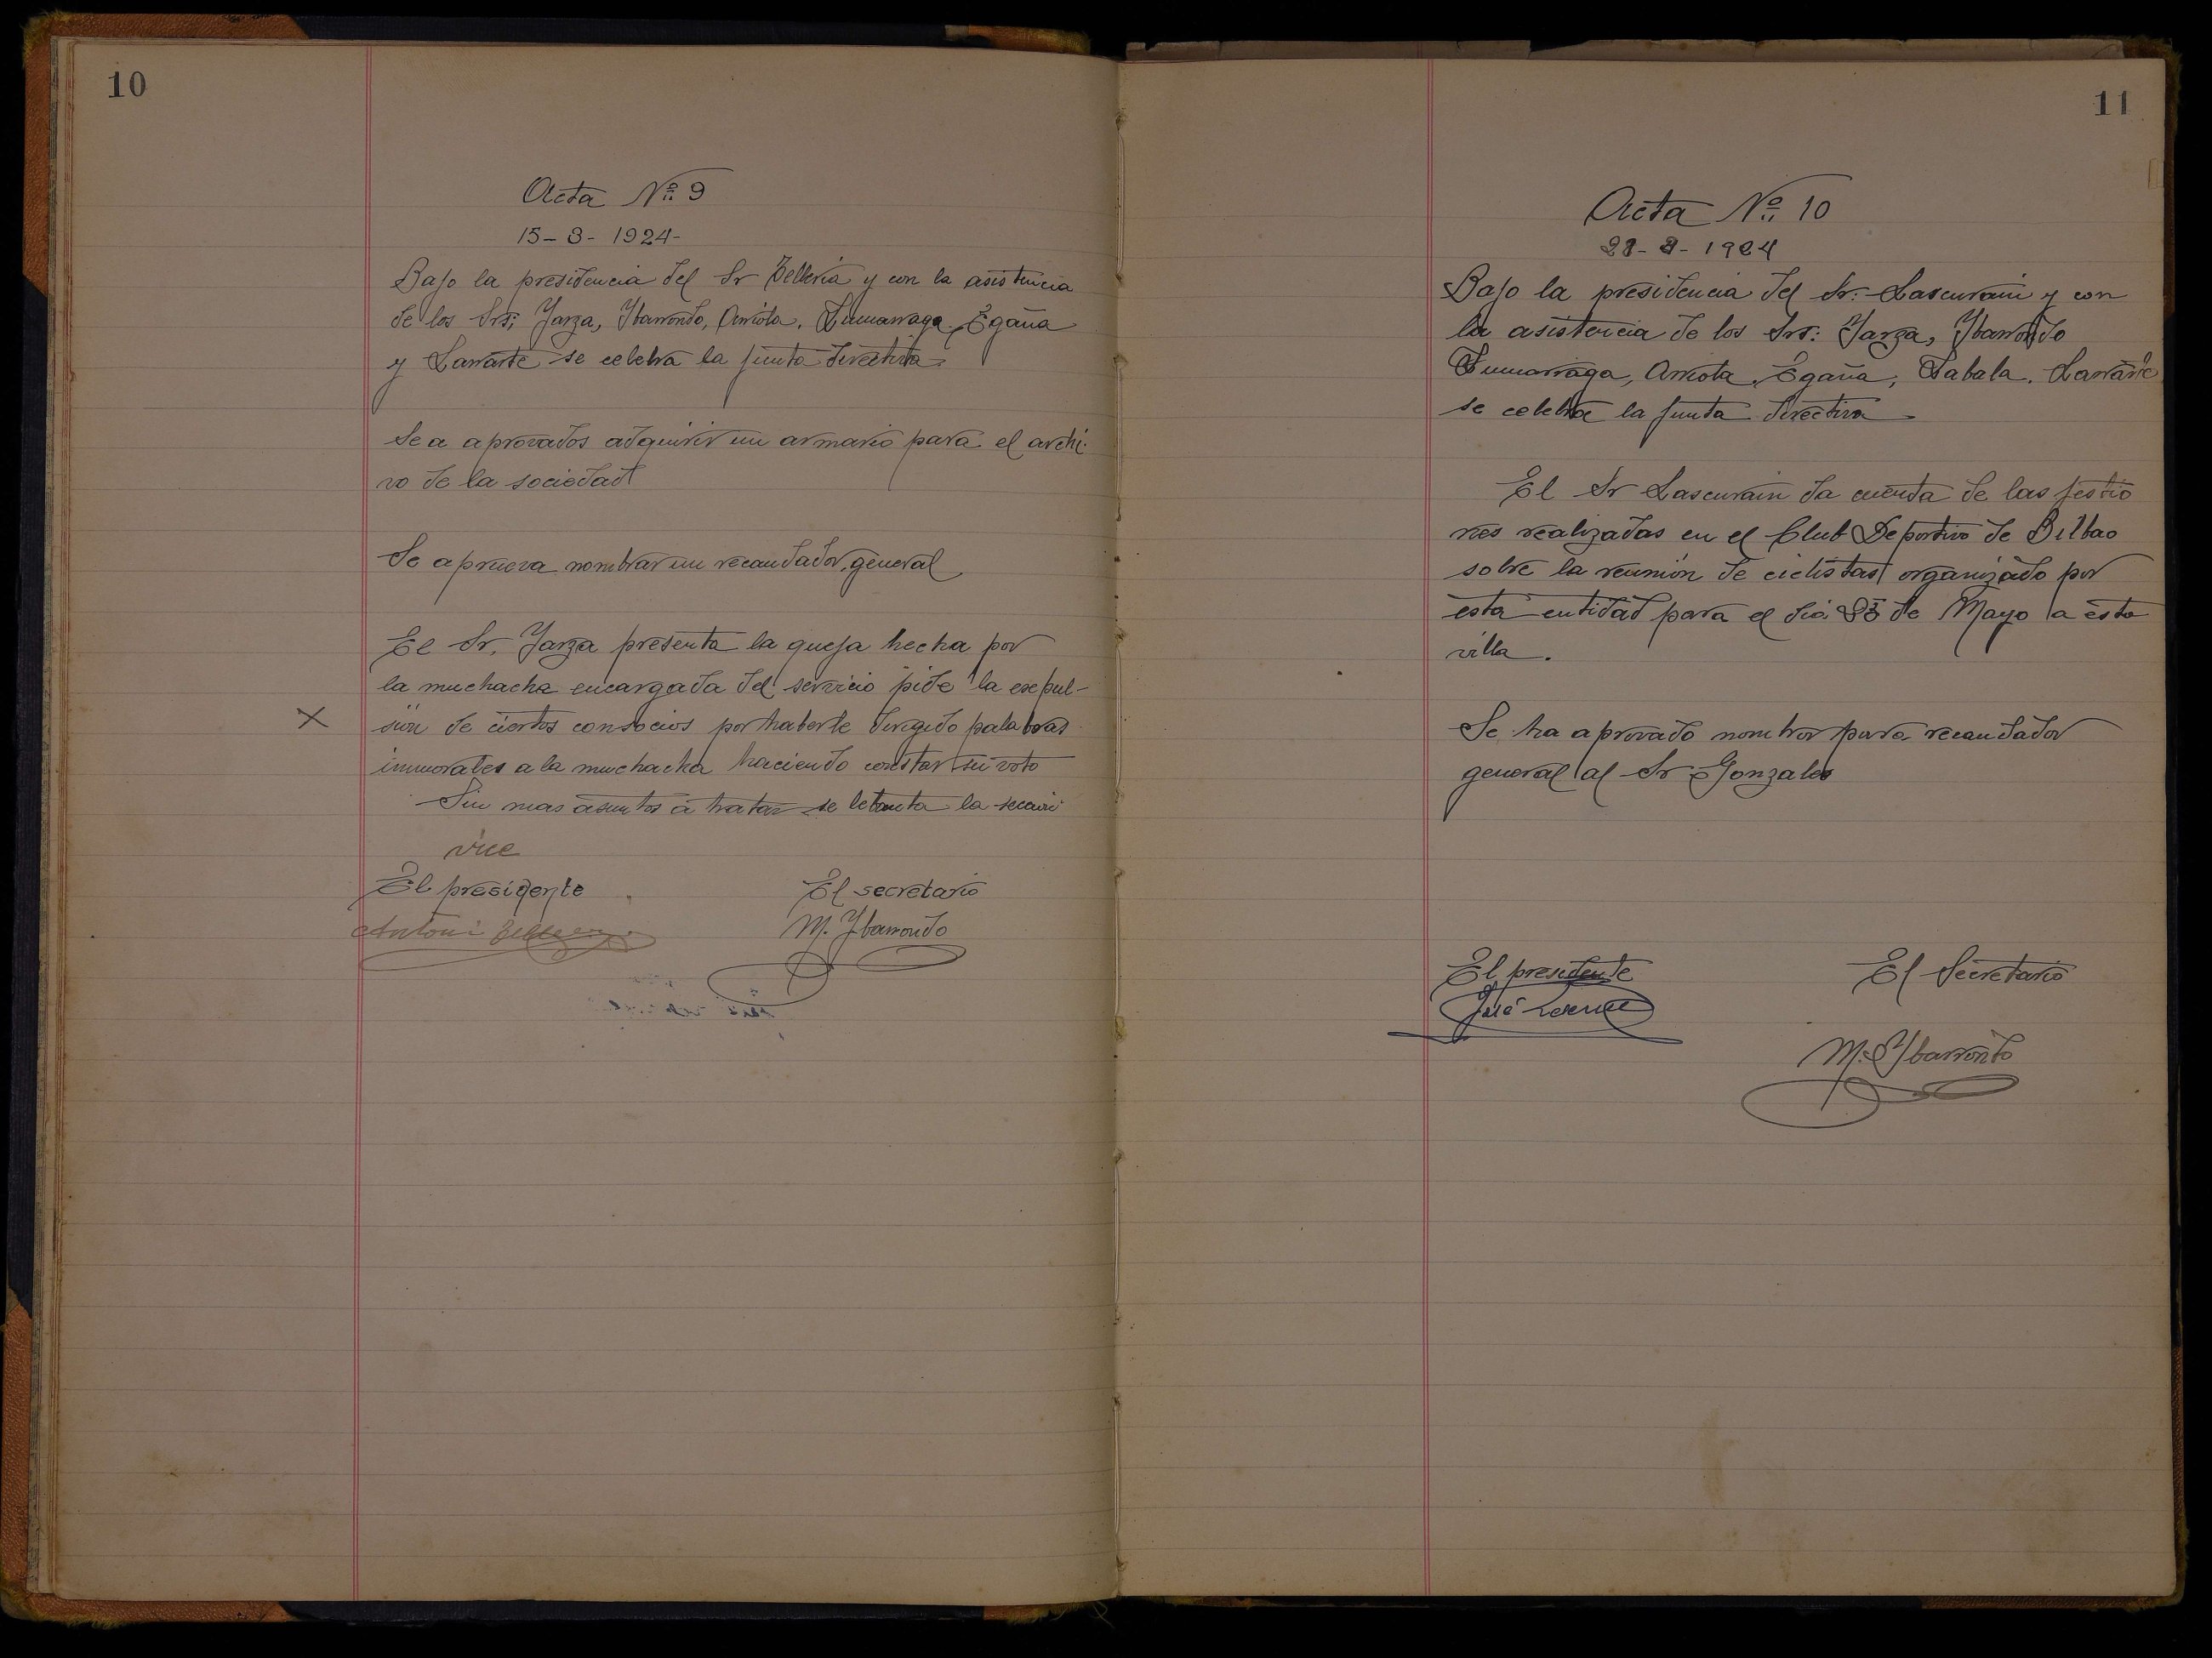 10
Acta Nº 9
15-3-1924-
Bajo la presidencia del Sr Telleria y con la asistencia
de los Srs; Yarza, Ybarrondo, Arriola, Zumarraga, Egaña
y Larrarte se celebra la junta directiva
Se a aprovados adquirir un armario para el archi-
vo de la sociedad
Se aprueva nombrar un recaudador general
El Sr. Yarza presenta la queja hecha por
la muchacha encargada del servicio pide la esepul-
sión de ciertos consocios por haberle dirigido palabras
immorales a la muchacha haciendo constar su voto
Sin mas asuntos a tratar se letanta la
vice
El presidente El secretario
Antoni M. Ybarrondo
11
Acta Nº 10
28-3-1924
Bajo la presidencia del Sr: Lascurain y con
la asistencia de los Srs: Yarza, Ybarrondo
Zumarraga, Arriola, Egaña, Zabala, Larrarte
se celebra la junta directiva
El Sr Lascurain da cuenta de las jestio
nes realizadas en el Club Deportivo de Bilbao
sobre la reunión de ciclistas organizado por
esta entidad para el dia de Mayo a esta
villa.
Se ha aprovado nombrar para recaudador
general al Sr Gonzales
El presidente El Secretario
José
M. Ybarrondo